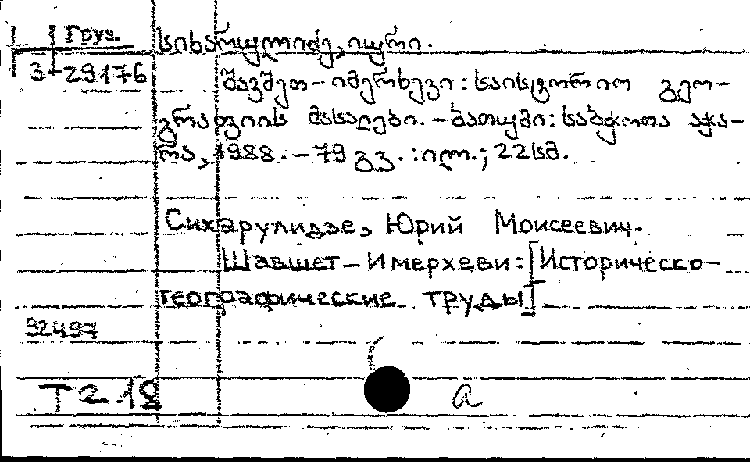 Груз.
3-29176
სიხარულიძე, იური.
შავშეთ-იმერხევი : საისტორიო გეო-
გრაფიის მასალები. - ბათუმი : საბჭოთა აჭა-
რა, 1988. - 79 გვ. : ილ. ; 22 სმ.
Сихарулидзе, Юрий Моисеевич.
Шавшет-Имерхеви : [Историческо-
географические труды]
92497
Т 2.18
а